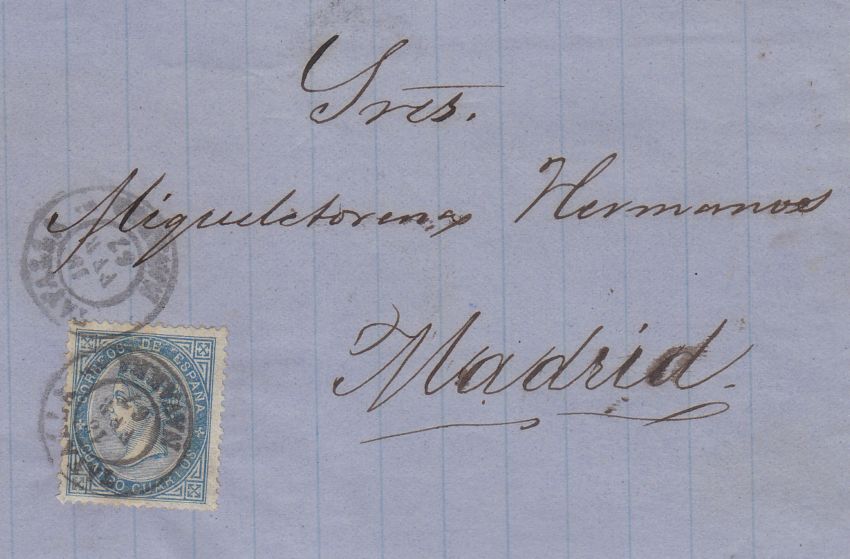 Sres.
Migueletorena Hermanos
Madrid.
CORREOS DE ESPAÑA
CUATRO CUARTOS
NAVARRA